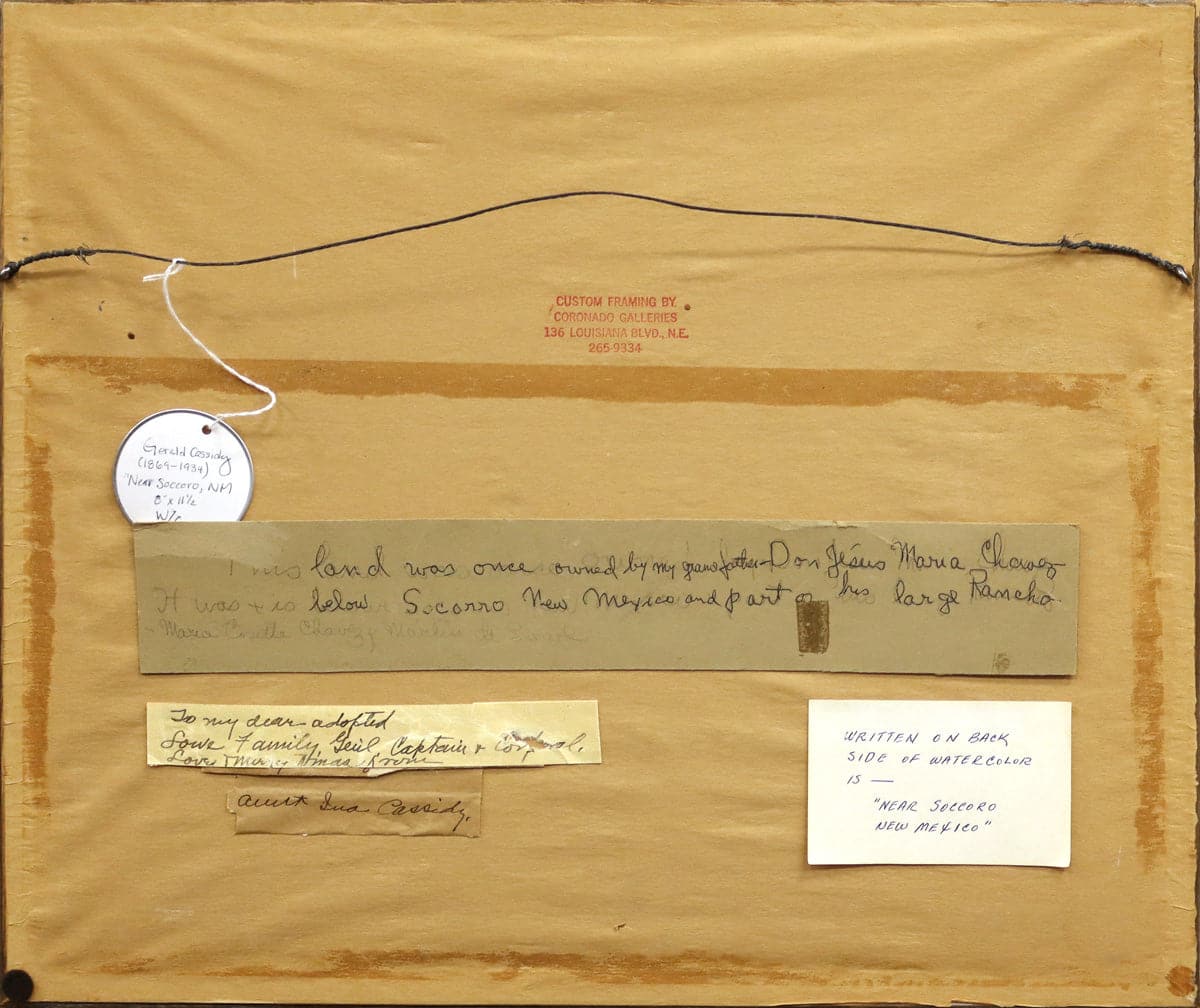 CUSTOM FRAMING BY
CORONADO GALLERIES
136 LOUISIANA BLVD., N.E.
265-9334
Gerald Cassidy
(1869-1934)
"Near Soccoro, NM
8" x 11½
W/c
This land was once owned by my grandfather Don Jésus Maria Chavez
It was + is below Socorro New Mexico and part of his large Rancho.
- Maria Chavez
To my dear adopted
Lowe Family, Captain + Corporal.
Love + Merry Xmas from
Aunt Ina Cassidy.
WRITTEN ON BACK
SIDE OF WATERCOLOR
IS —
"NEAR SOCCORO
NEW MEXICO"